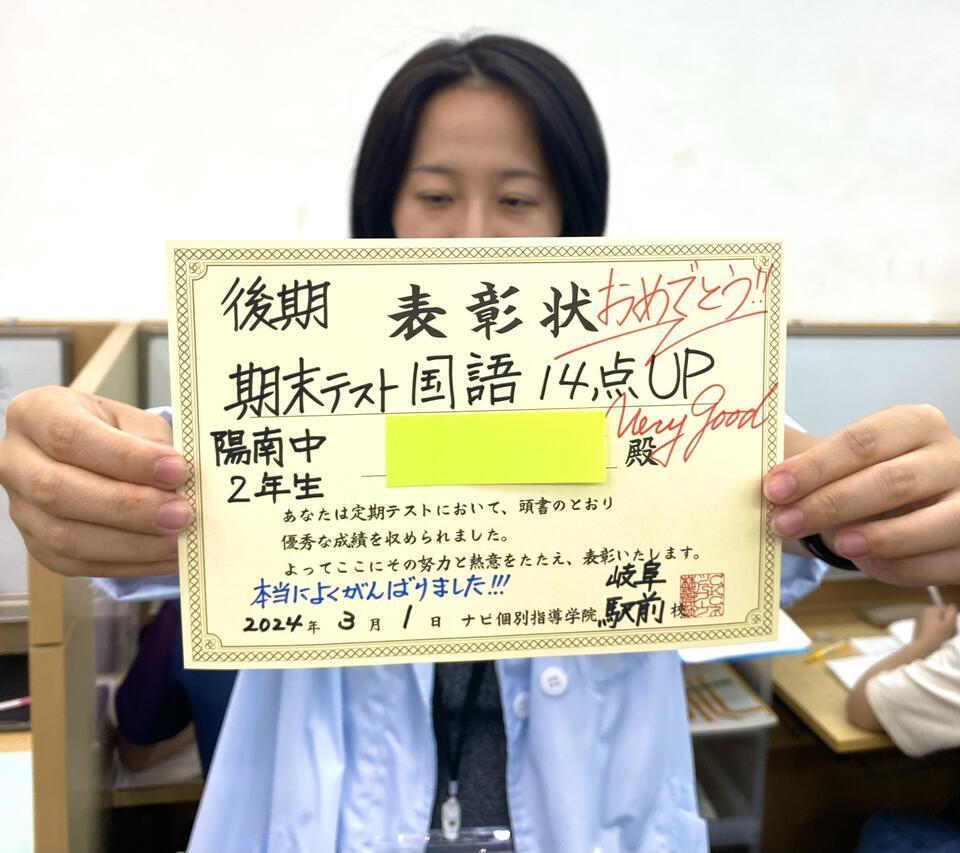 後期 表彰状 おめでとう!!
期末テスト国語 14点UP
Very good
陽南中
2年生
殿
あなたは定期テストにおいて、頭書のとおり
優秀な成績を収められました。
よってここにその努力と熱意をたたえ、表彰いたします。
本当によくがんばりました!!!
岐阜
2024年 3月 1日 ナビ個別指導学院 駅前 校